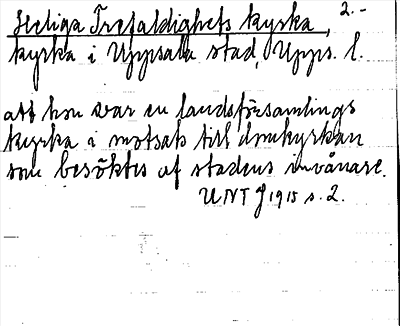 Heliga Trefaldighets kyrka, 2.-
kyrka i Uppsala stad, Upps. l.
att hon var en landsförsamlings
kyrka i motsats till domkyrkan
som besöktes af stadens invånare.
UNT J 1915 s. 2.